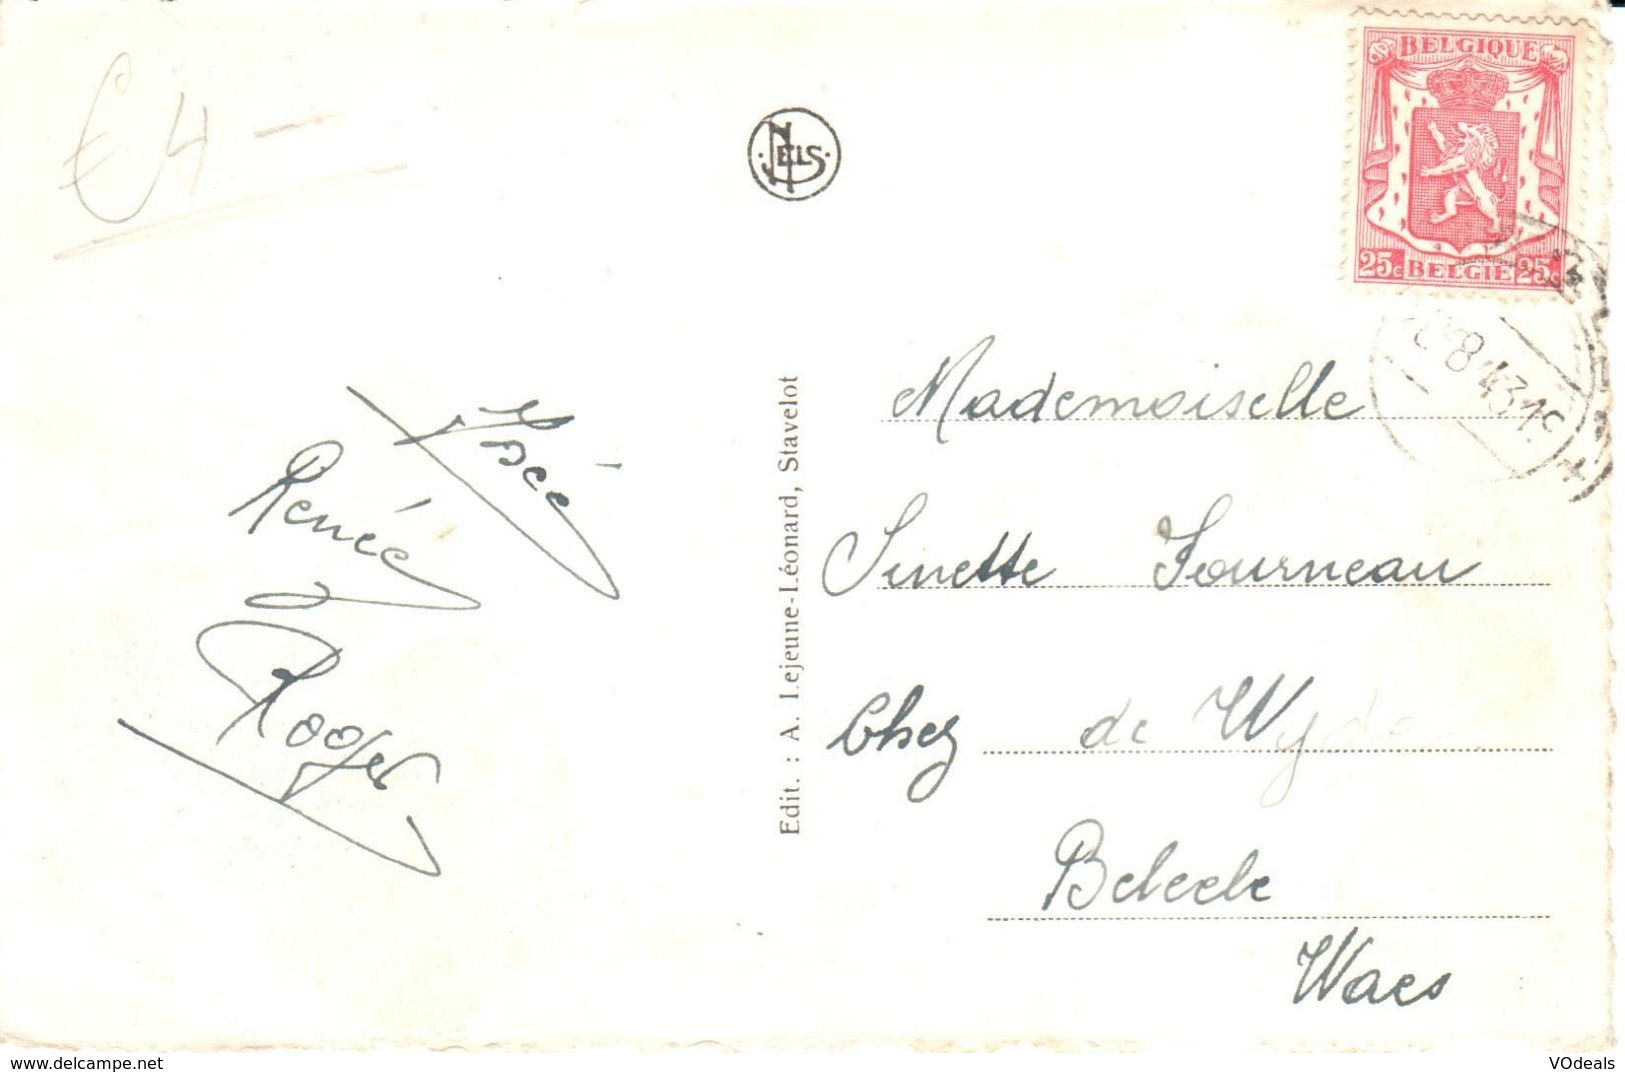 € 4 —
NELS
BELGIQUE
25c BELGIE 25c
8 43
Edit. : A. Lejeune-Léonard, Stavelot
Renée
Roger
Mademoiselle
Sinette Fourneau
Chez de Wyde
Belcele
Waes
delcampe.net
VOdeals